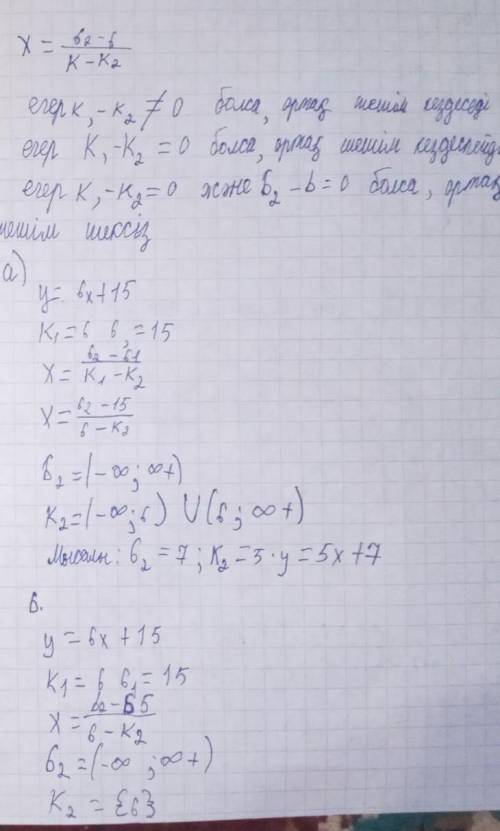 x = б₂-б / к-к₂
егер к₁-к₂ ≠ 0 болса, ортақ шешім кездеседі
егер К₁-К₂ = 0 болса, ортақ шешім кездеспейді
егер к₁-к₂=0 және б₂-b=0 болса, ортақ
шешім шексіз
а)
y= 6x+15
К₁=6 б₁=15
x= б₂-б1 / К₁-К₂
x= б₂-15 / 6-К₂
Б₂=(-∞;∞+)
К₂=(-∞;6) ∪ (6;∞+)
Мысалы: б₂=7; К₂=5. y=5x+7
Б.
y=6x+15
К1=6 б₁=15
x= б₂-Б5 / 6-К₂
б₂=(-∞;∞+)
К₂={6}